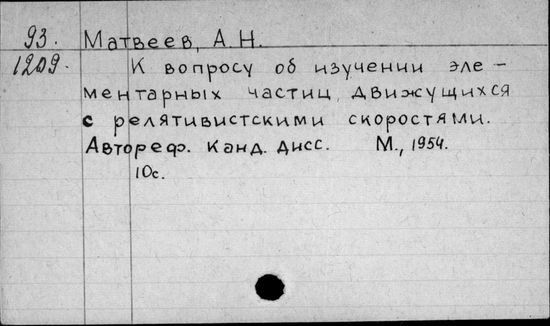 93. Матвеев, А.Н.
1209. К вопросу об изучении эле-
ментарных частиц, движущихся
с релятивистскими скоростями.
Автореф. канд. дисс. М., 1954.
10с.